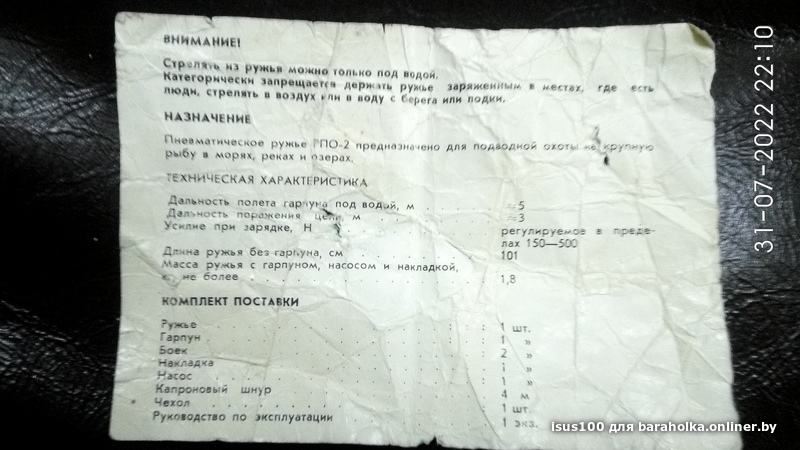 ВНИМАНИЕ!
Стрелять из ружья можно только под водой.
Категорически запрещается держать ружье заряженным в местах, где есть
люди, стрелять в воздух или в воду с берега или лодки.
НАЗНАЧЕНИЕ
Пневматическое ружье РПО-2 предназначено для подводной охоты на крупную
рыбу в морях, реках и озерах.
ТЕХНИЧЕСКАЯ ХАРАКТЕРИСТИКА
Дальность полета гарпуна под водой, м . . . ≈5
Дальность поражения цели, м . . . ≈3
Усилие при зарядке, Н . . . регулируемое в преде-
лах 150—500
Длина ружья без гарпуна, см . . . 101
Масса ружья с гарпуном, насосом и накладкой,
кг, не более . . . 1,8
КОМПЛЕКТ ПОСТАВКИ
Ружье . . . 1 шт.
Гарпун . . . 1 »
Боек . . . 2 »
Накладка . . . 1 »
Насос . . . 1 »
Капроновый шнур . . . 4 м
Чехол . . . 1 шт.
Руководство по эксплуатации . . . 1 экз.
31-07-2022 22:10
isus100 для baraholka.onliner.by